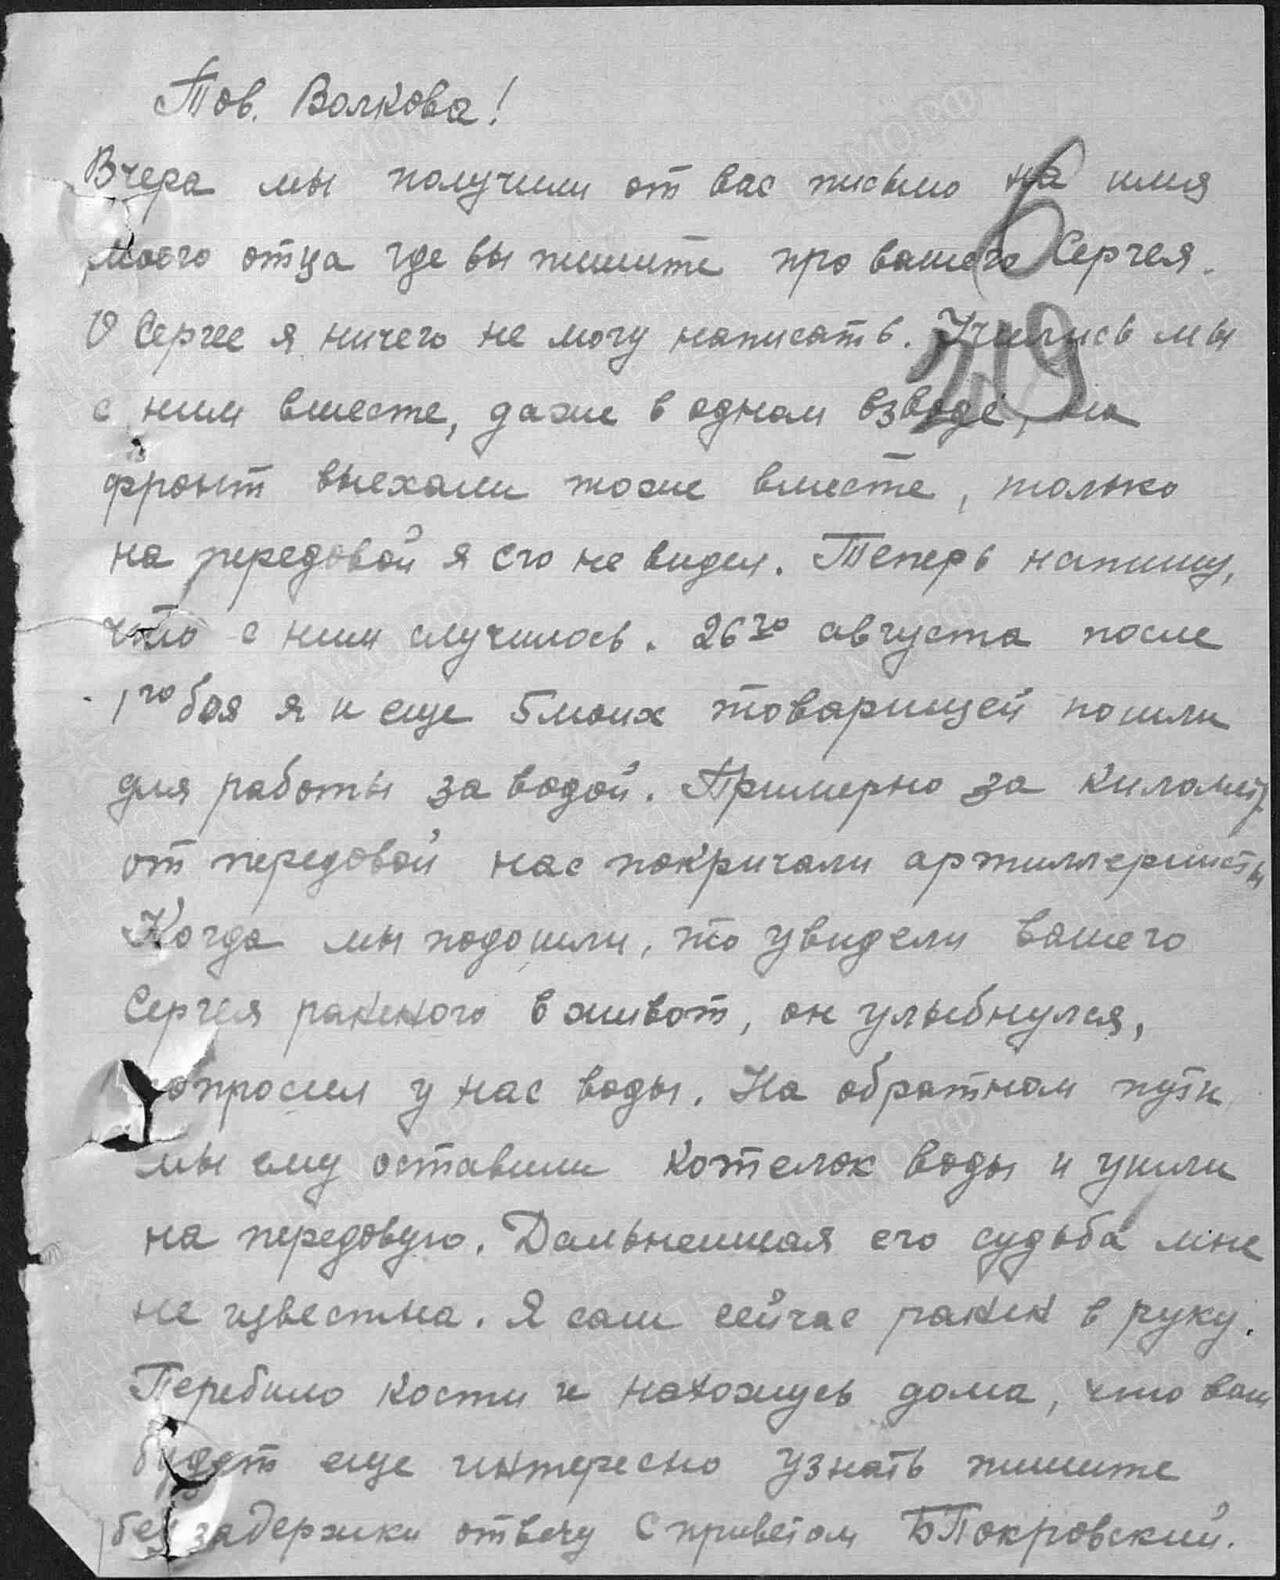 Тов. Волкова!
Вчера мы получили от вас письмо на имя
моего отца где вы пишите про вашего Сергея.
О Сергее я ничего не могу написать. Учились мы
с ним вместе, даже в одном взводе, на
фронт выехали тоже вместе, только
на передовой я его не видел. Теперь напишу,
что с ним случилось. 26го августа после
1го боя я и еще 5 моих товарищей пошли
для работы за водой. Примерно за километр.
от передовой нас покричали артиллеристы
Когда мы подошли, то увидели вашего
Сергея раненого в живот, он улыбнулся,
попросил у нас воды. На обратном пути
мы ему оставили котелок воды и ушли
на передовую. Дальнейшая его судьба мне
не известна. Я сам сейчас ранен в руку.
Перебило кости и нахожусь дома, что вам
будет еще интересно узнать пишите
без задержки отвечу С приветом БПокровский.
6
219
НАРОДА
ПАМЯТЬ
НАМО.РФ